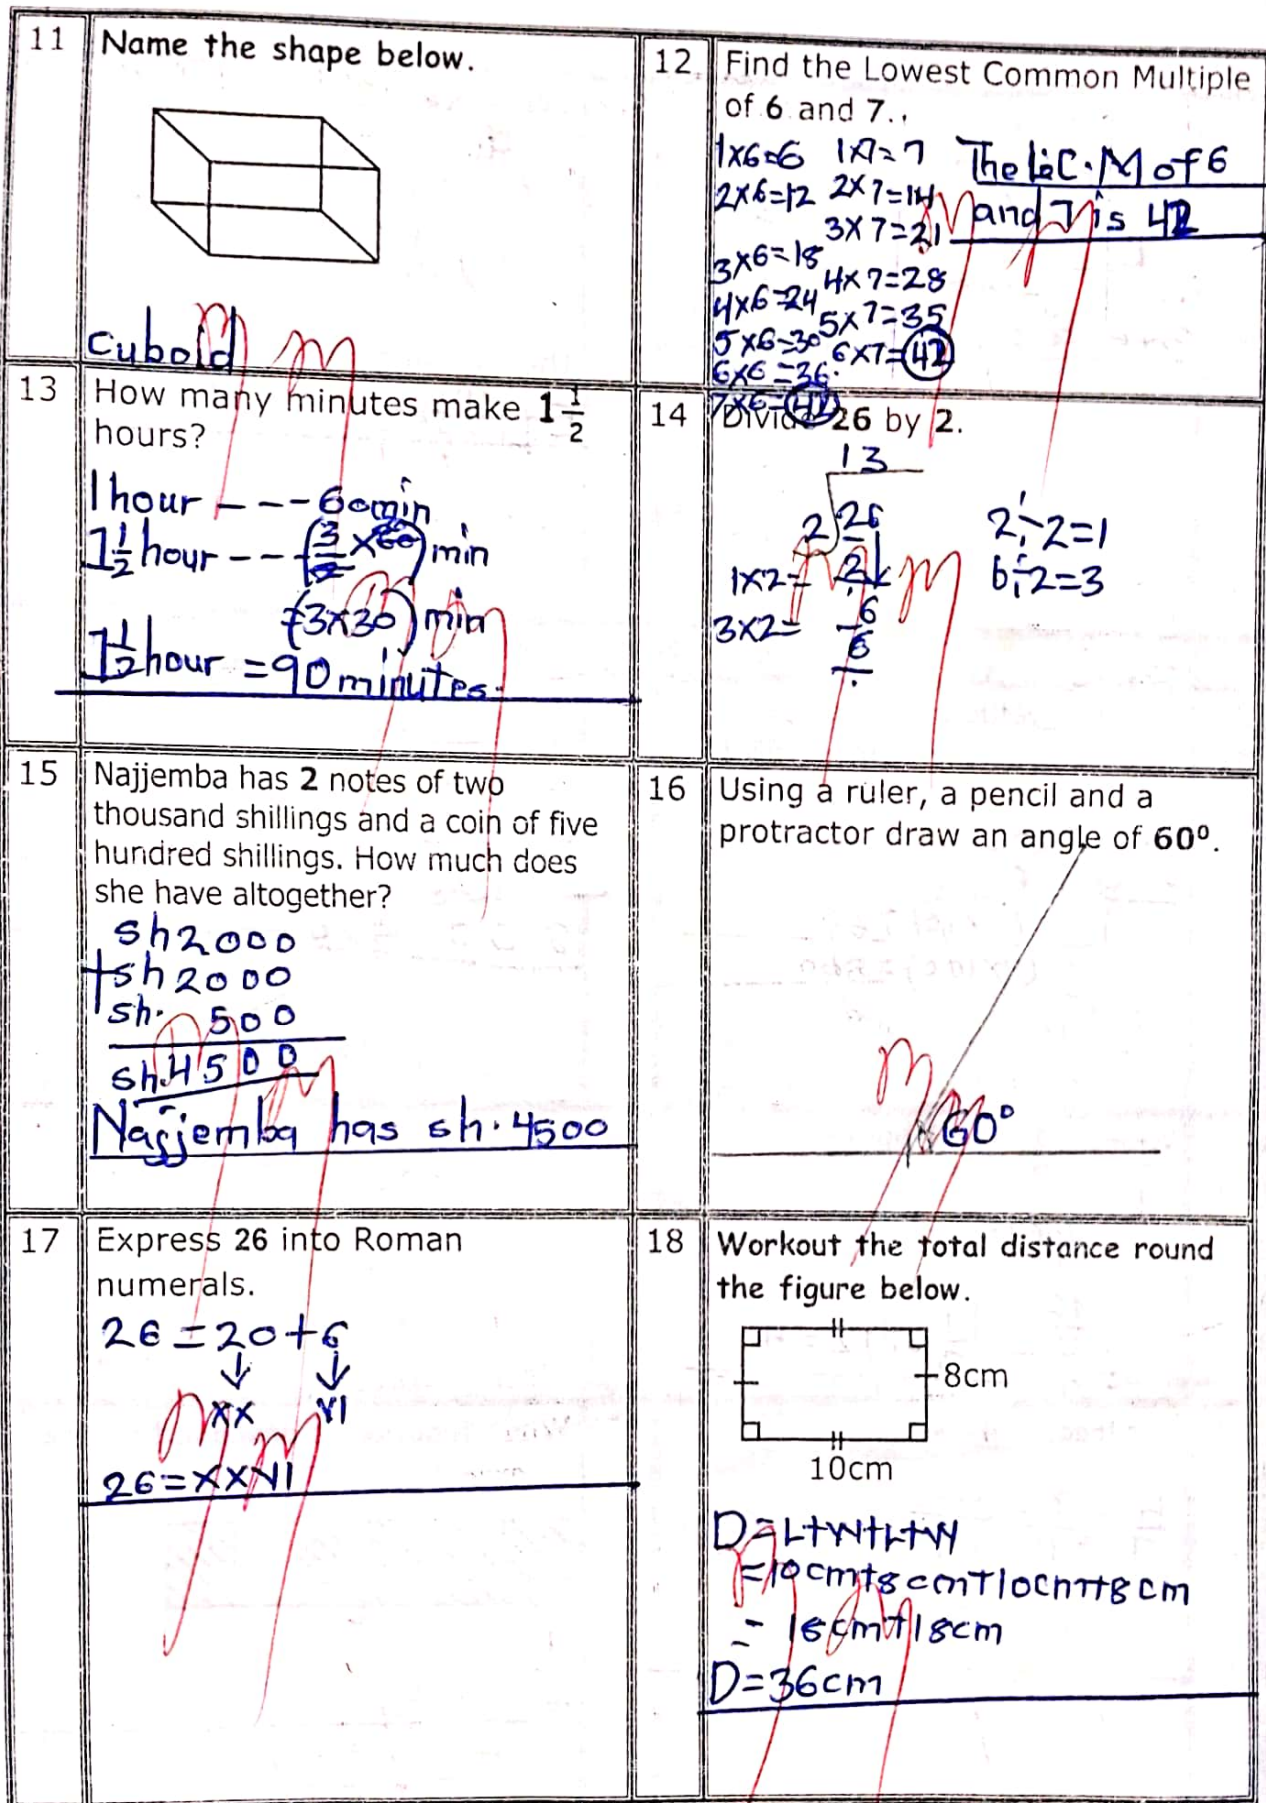 11
Name the shape below.
cuboid
12
Find the Lowest Common Multiple
of 6 and 7.
1x6=6 1x7=7
2x6=12 2x7=14
3x7=21
3x6=18
4x7=28
4x6=24
5x7=35
5x6=30
6x7=42
6x6=36
7x6=42
The L.C.M of 6
and 7 is 42
13
How many minutes make 1 1/2
hours?
1 hour - - - 60min
1 1/2 hour - - - (3/2 x 60) min
=(3x30) min
1 1/2 hour = 90 minutes.
14
Divide 26 by 2.
13
2 26
1x2= 2
3x2= -6
6
2÷2=1
6÷2=3
15
Najjemba has 2 notes of two
thousand shillings and a coin of five
hundred shillings. How much does
she have altogether?
sh2000
+sh2000
sh. 500
sh.4500
Najjemba has sh.4500
16
Using a ruler, a pencil and a
protractor draw an angle of 60º.
60°
17
Express 26 into Roman
numerals.
26=20+6
XX VI
26=XXVI
18
Workout the total distance round
the figure below.
8cm
10cm
D=L+W+L+W
=10cm+8cm+10cm+8cm
= 18cm+18cm
D=36cm